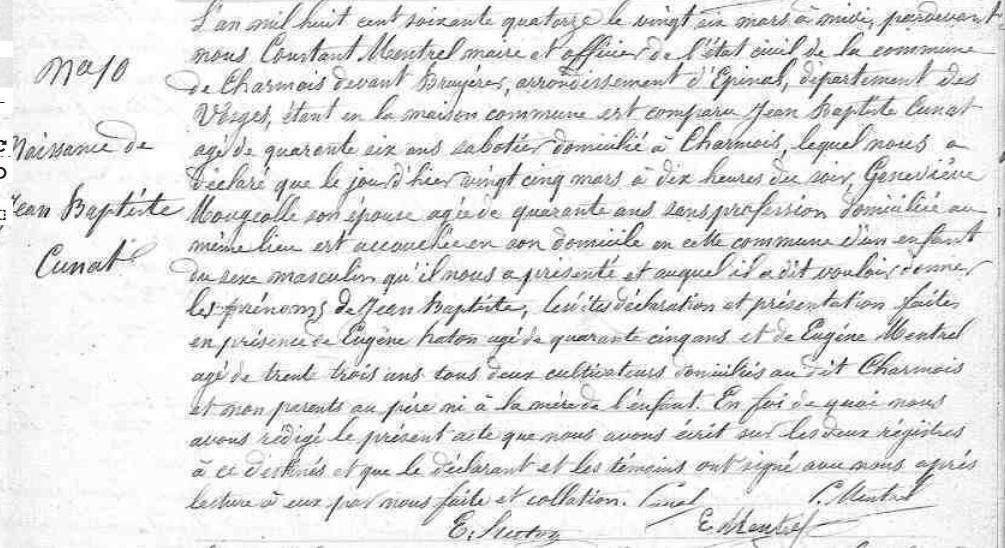 L'an mil huit cent soixante quatorze le vingt six mars à midi, pardevant
nous Constant Mentrel maire et officier de l'état civil de la commune
de Charmois devant Bruyères, arrondissement d'Epinal, département des
Vosges, étant en la maison commune est comparu Jean Baptiste Cunat
agé de quarante six ans sabotier domicilié à Charmois, lequel nous a
déclaré que le jour d'hier vingt cinq mars à dix heures du soir, Geneviève
Mougeolle son épouse agée de quarante ans sans profession domiciliée au
même lieu est accouchée en son domicile en cette commune d'un enfant
du sexe masculin qu'il nous a présenté et auquel il a dit vouloir donner
les prénoms de Jean Baptiste, lesdites déclaration et présentation faites
en présence de Eugène haton agé de quarante cinq ans et de Eugène Mentrel
agé de trente trois ans tous deux cultivateurs domiciliés au dit Charmois
et non parents au père ni à la mère de l'enfant. En foi de quoi nous
avons rédigé le présent acte que nous avons écrit sur les deux régistres
à ce destinés et que le déclarant et les témoins ont signé avec nous après
lecture à eux par nous faite et collation. Cunat C. Mentrel
E. haton E. Mentrel
No 10
Naissance de
Jean Baptiste
Cunat